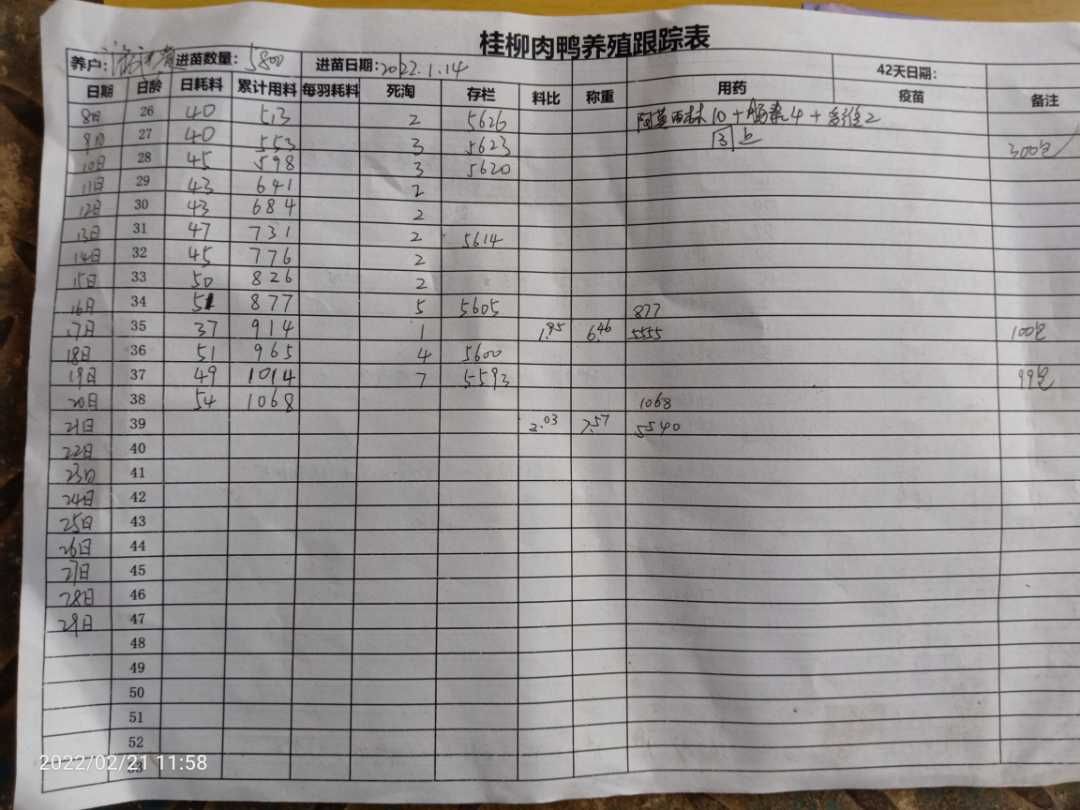 桂柳肉鸭养殖跟踪表
养户: 进苗数量: 5800 进苗日期: 2022.1.14 42天日期:
日期 日龄 日耗料 累计用料 每羽耗料 死淘 存栏 料比 称重 用药 疫苗 备注
8日 26 40 513 2 5626 阿莫西林10+肠素4+多维2
9日 27 40 553 3 5623 同上 300包
10日 28 45 598 3 5620
11日 29 43 641 2
12日 30 43 684 2
13日 31 47 731 2 5614
14日 32 45 776 2
15日 33 50 826 2
16日 34 51 877 5 5605 877
17日 35 37 914 1 1.95 6.46 5555 100包
18日 36 51 965 4 5600
19日 37 49 1014 7 5593 99包
20日 38 54 1068 1068
21日 39 2.03 7.57 5540
22日 40
23日 41
24日 42
25日 43
26日 44
27日 45
28日 46
29日 47
48
49
50
51
52
2022/02/21 11:58